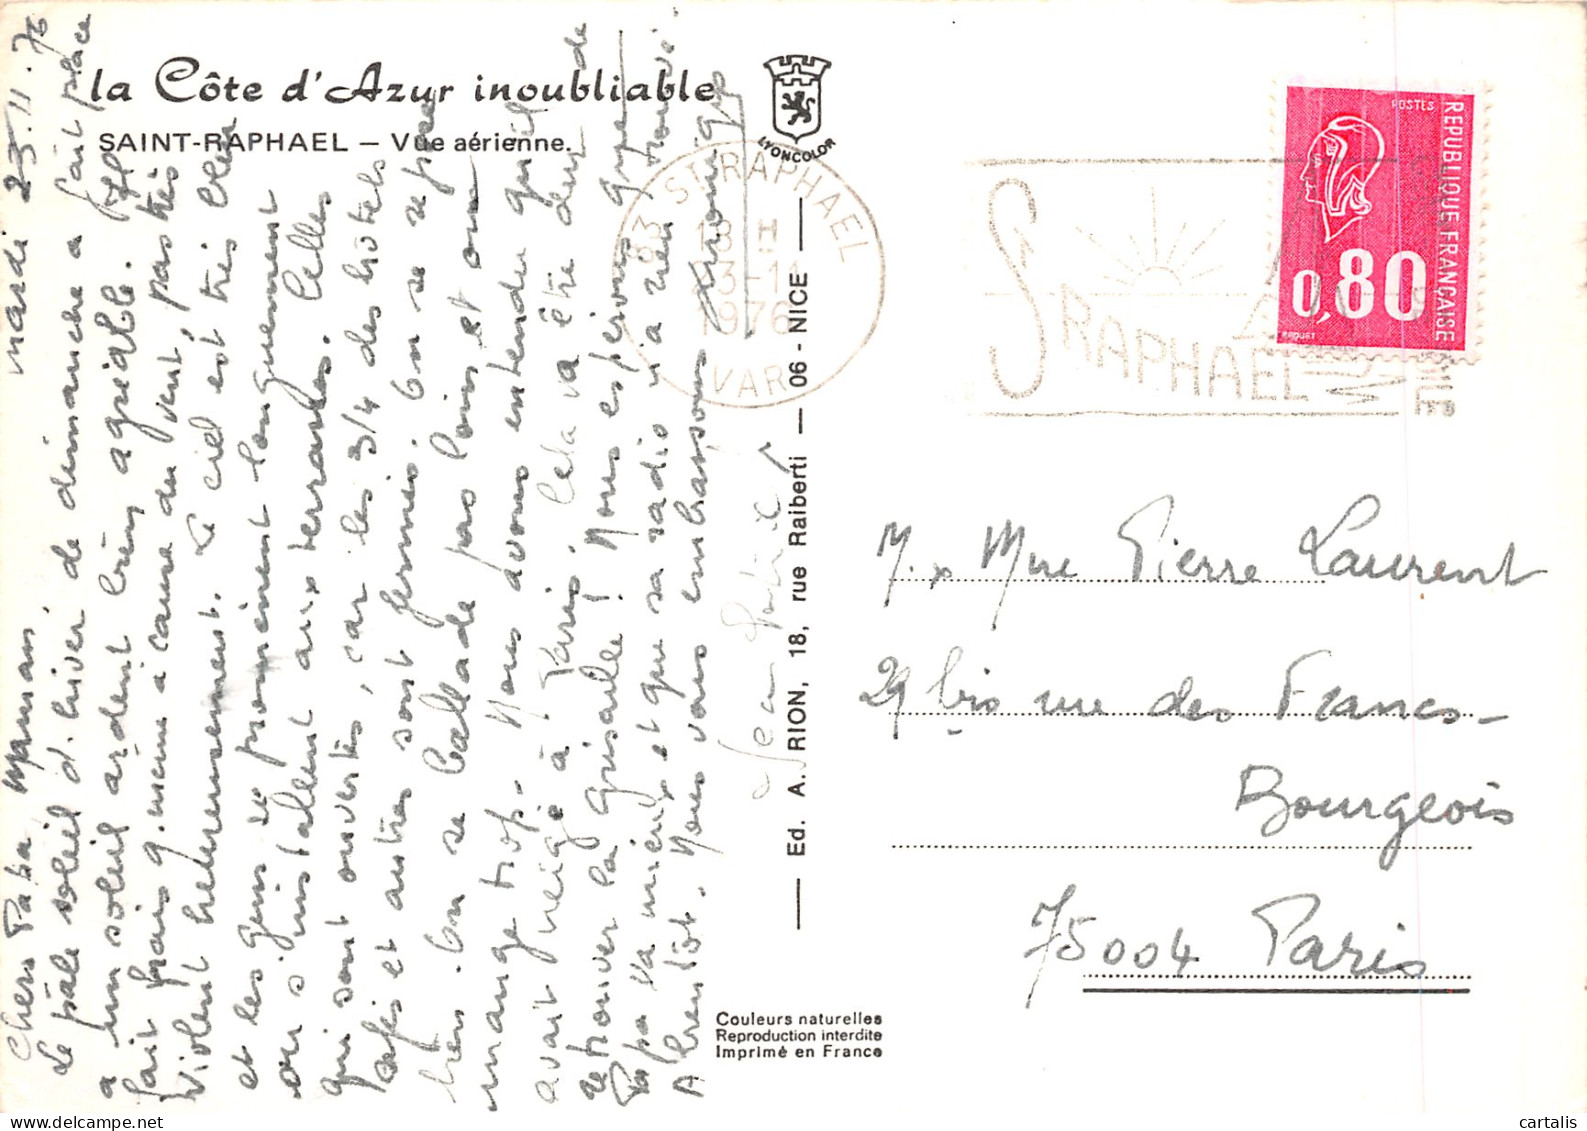 la Côte d'Azur inoubliable
SAINT-RAPHAEL — Vue aérienne.
LYONCOLOR
mardi 23.11.76
Chers Papa, Maman,
Le pâle soleil d'hiver de dimanche a fait place
à un soleil ardent bien agréable. Il
fait frais q. même à cause du vent, pas très
violent heureusement. Le ciel est très bleu
et les gens se promènent longuement
ou s'installent aux terrasses. Celles
qui sont ouvertes, car les 3/4 des hôtels
cafés et autres sont fermés. On se repose
bien. On se ballade pas loin et on
mange trop. Nous avons entendu qu'il
avait neigé à Paris. Cela va être dur de
retrouver la grisaille ! Nous espérons que
Papa va mieux et que sa radio n'a rien trouvé.
A bientôt. Nous vous embrassons
Jean Patrick
83 ST RAPHAEL
18 H
23-11
1976
VAR
ST RAPHAEL
POSTES
REPUBLIQUE FRANÇAISE
0,80
BEQUET
Ed. A. RION, 18, rue Raiberti — 06 - NICE
M. x Mme Pierre Laurent
29 bis rue des Francs-
Bourgeois
75004 Paris
Couleurs naturelles
Reproduction interdite
Imprimé en France
cartalis